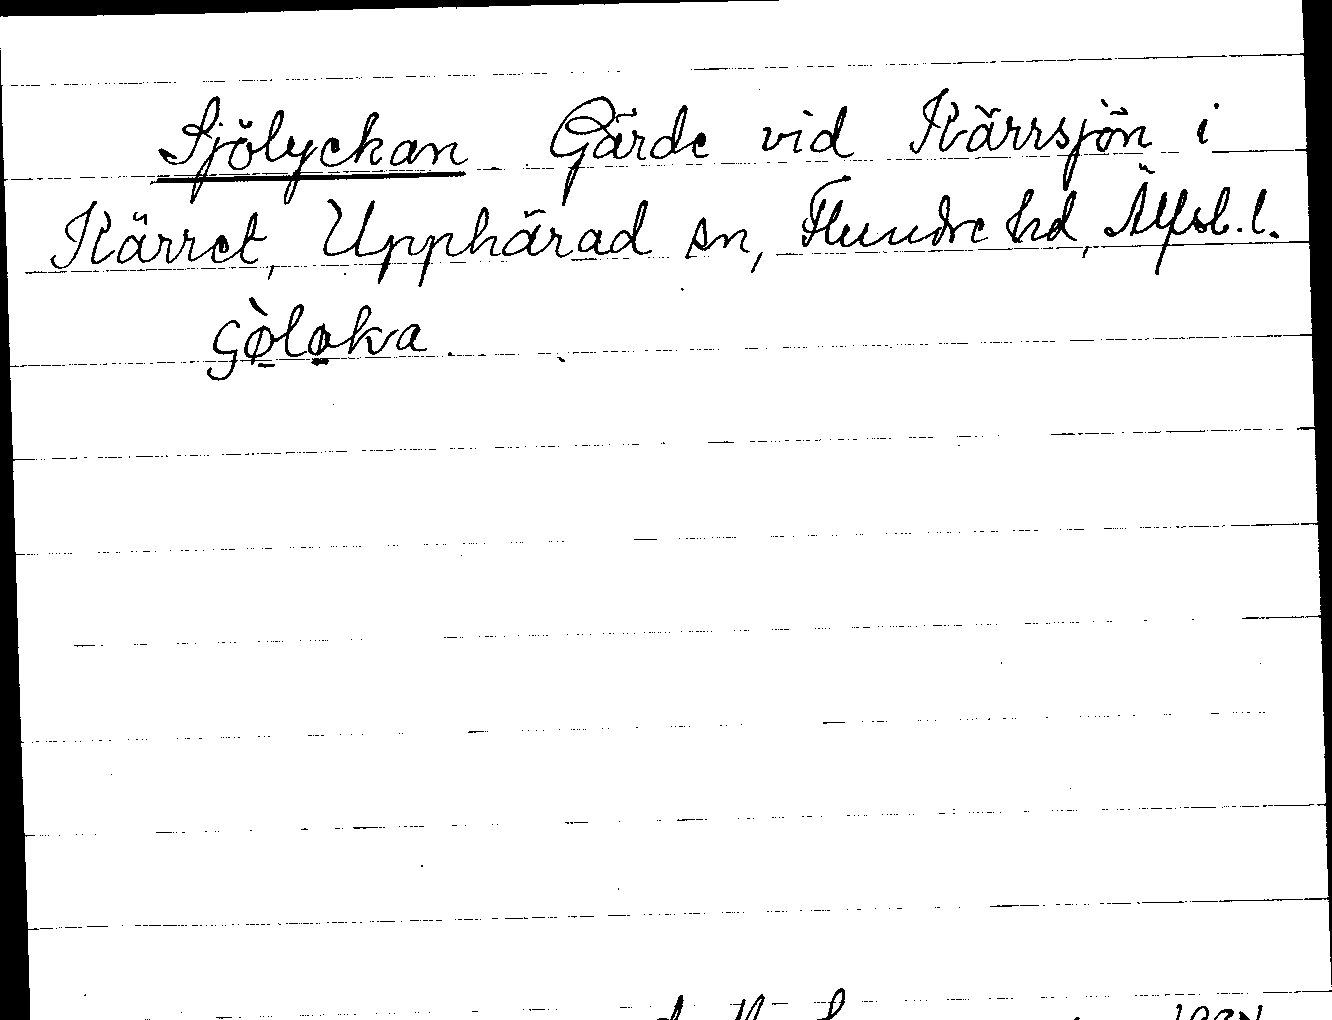 Sjölyckan Gärde vid Kärrsjön i
Kärret, Upphärad sn, Flundre hd, Älfsb. l.